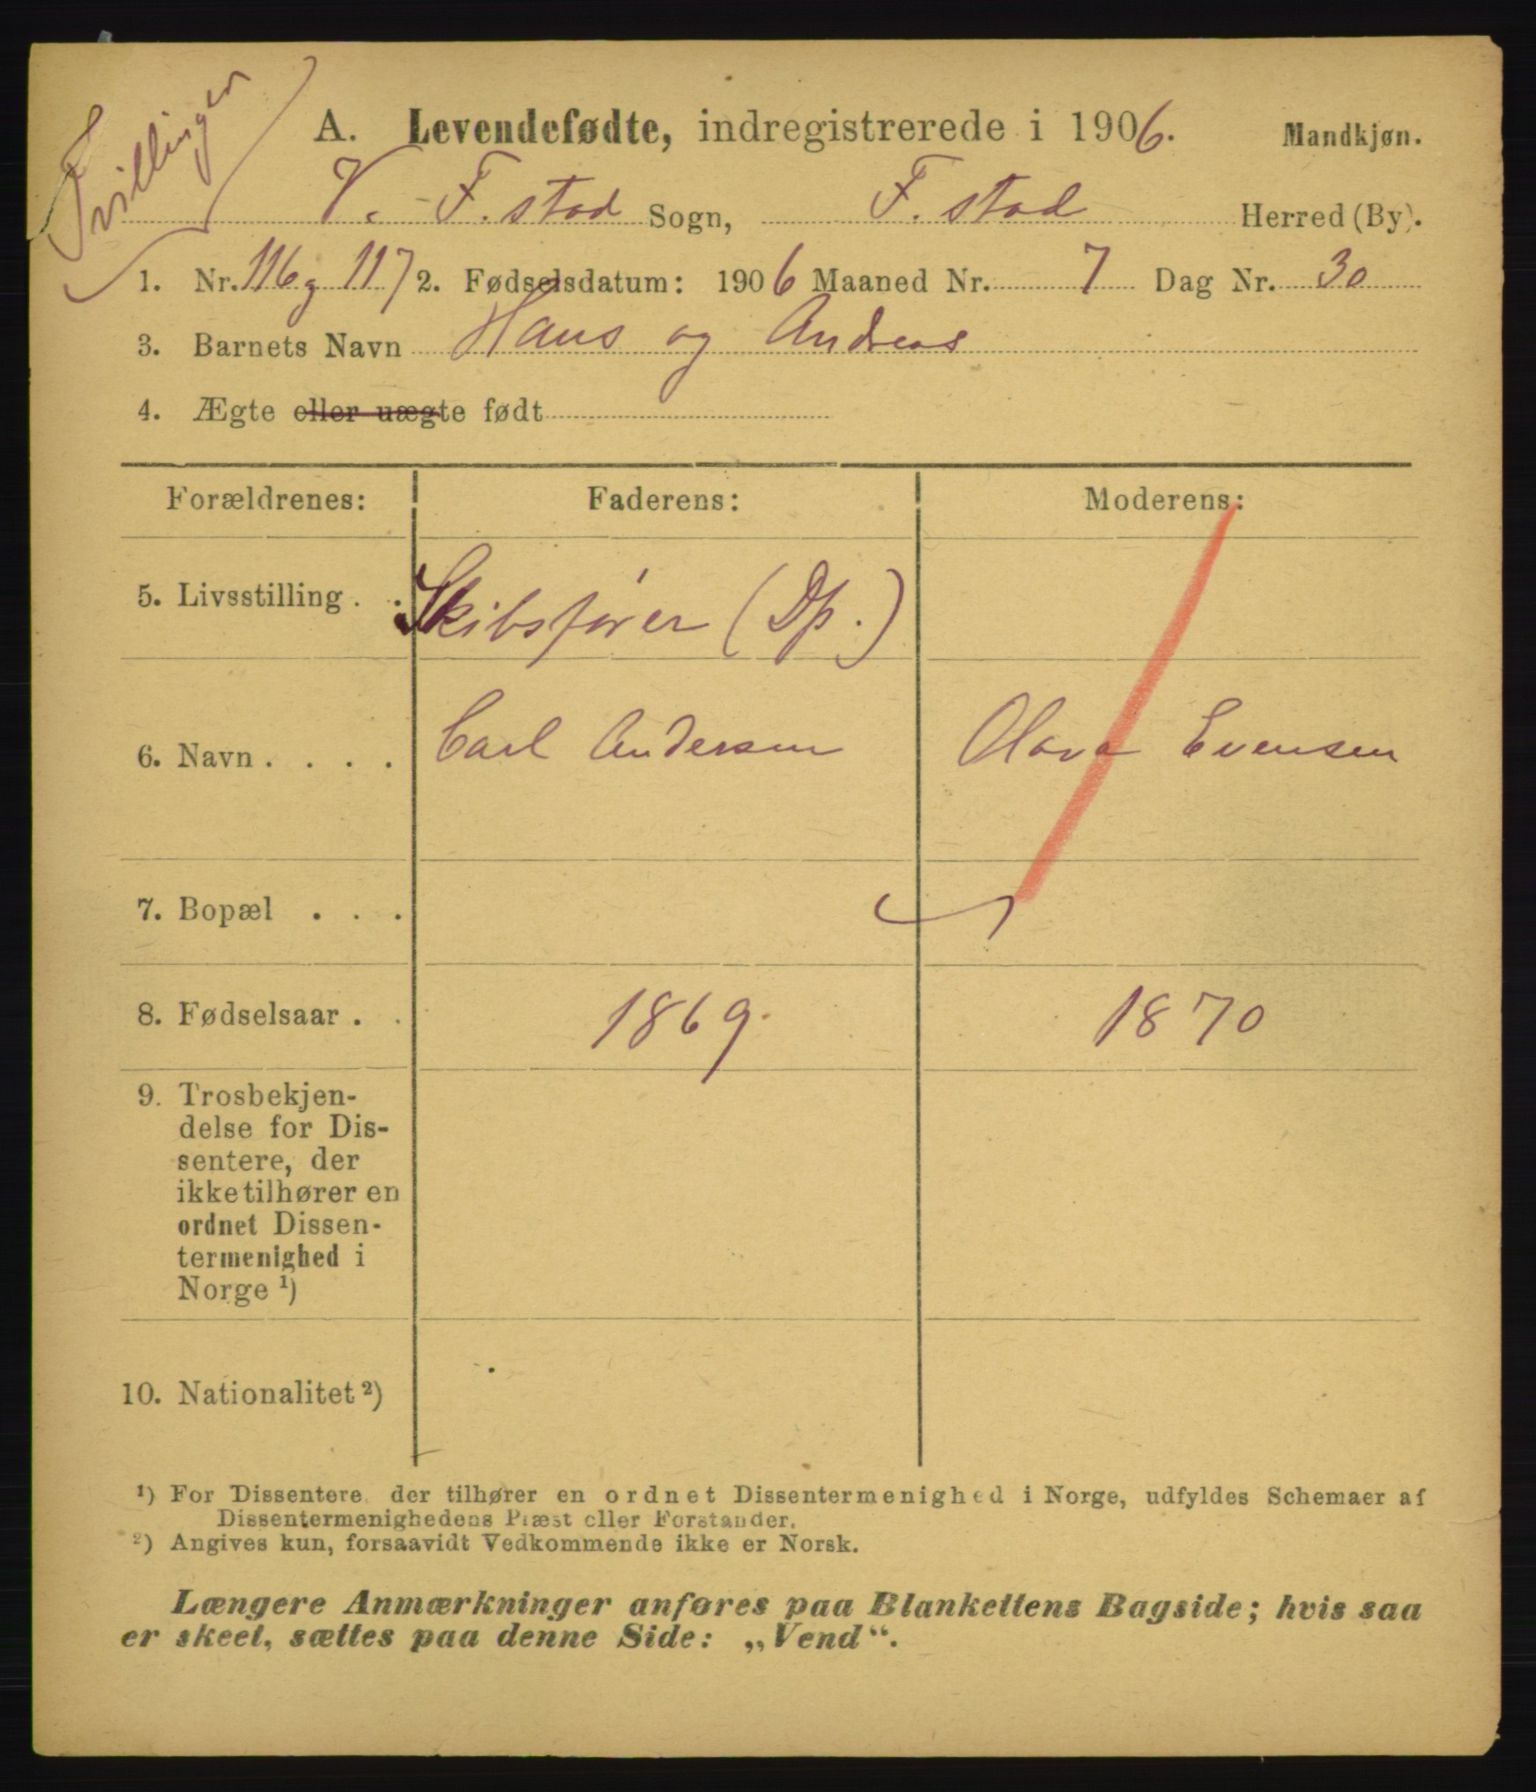 Tvillinger
A. Levendefødte, indregistrerede i 1906. Mandkjøn.
V. F.stad Sogn, F.stad Herred (By).
1. Nr. 116 og 117 2. Fødselsdatum: 1906 Maaned Nr. 7 Dag Nr. 30
3. Barnets Navn Hans og Andreas
4. Ægte eller uægte født
Forældrenes: Faderens: Moderens:
5. Livsstilling . . Skibsfører (Dp.)
6. Navn . . . . Carl Andersen Olava Evensen
7. Bopæl . . .
8. Fødselsaar . . 1869. 1870
9. Trosbekjen-
delse for Dis-
sentere, der
ikke tilhører en
ordnet Dissen-
termenighed i
Norge ¹)
10. Nationalitet ²)
¹) For Dissentere, der tilhører en ordnet Dissentermenighed i Norge, udfyldes Schemaer af
Dissentermenighedens Præst eller Forstander.
²) Angives kun, forsaavidt Vedkommende ikke er Norsk.
Længere Anmærkninger anføres paa Blankettens Bagside; hvis saa
er skeet, sættes paa denne Side: „Vend“.